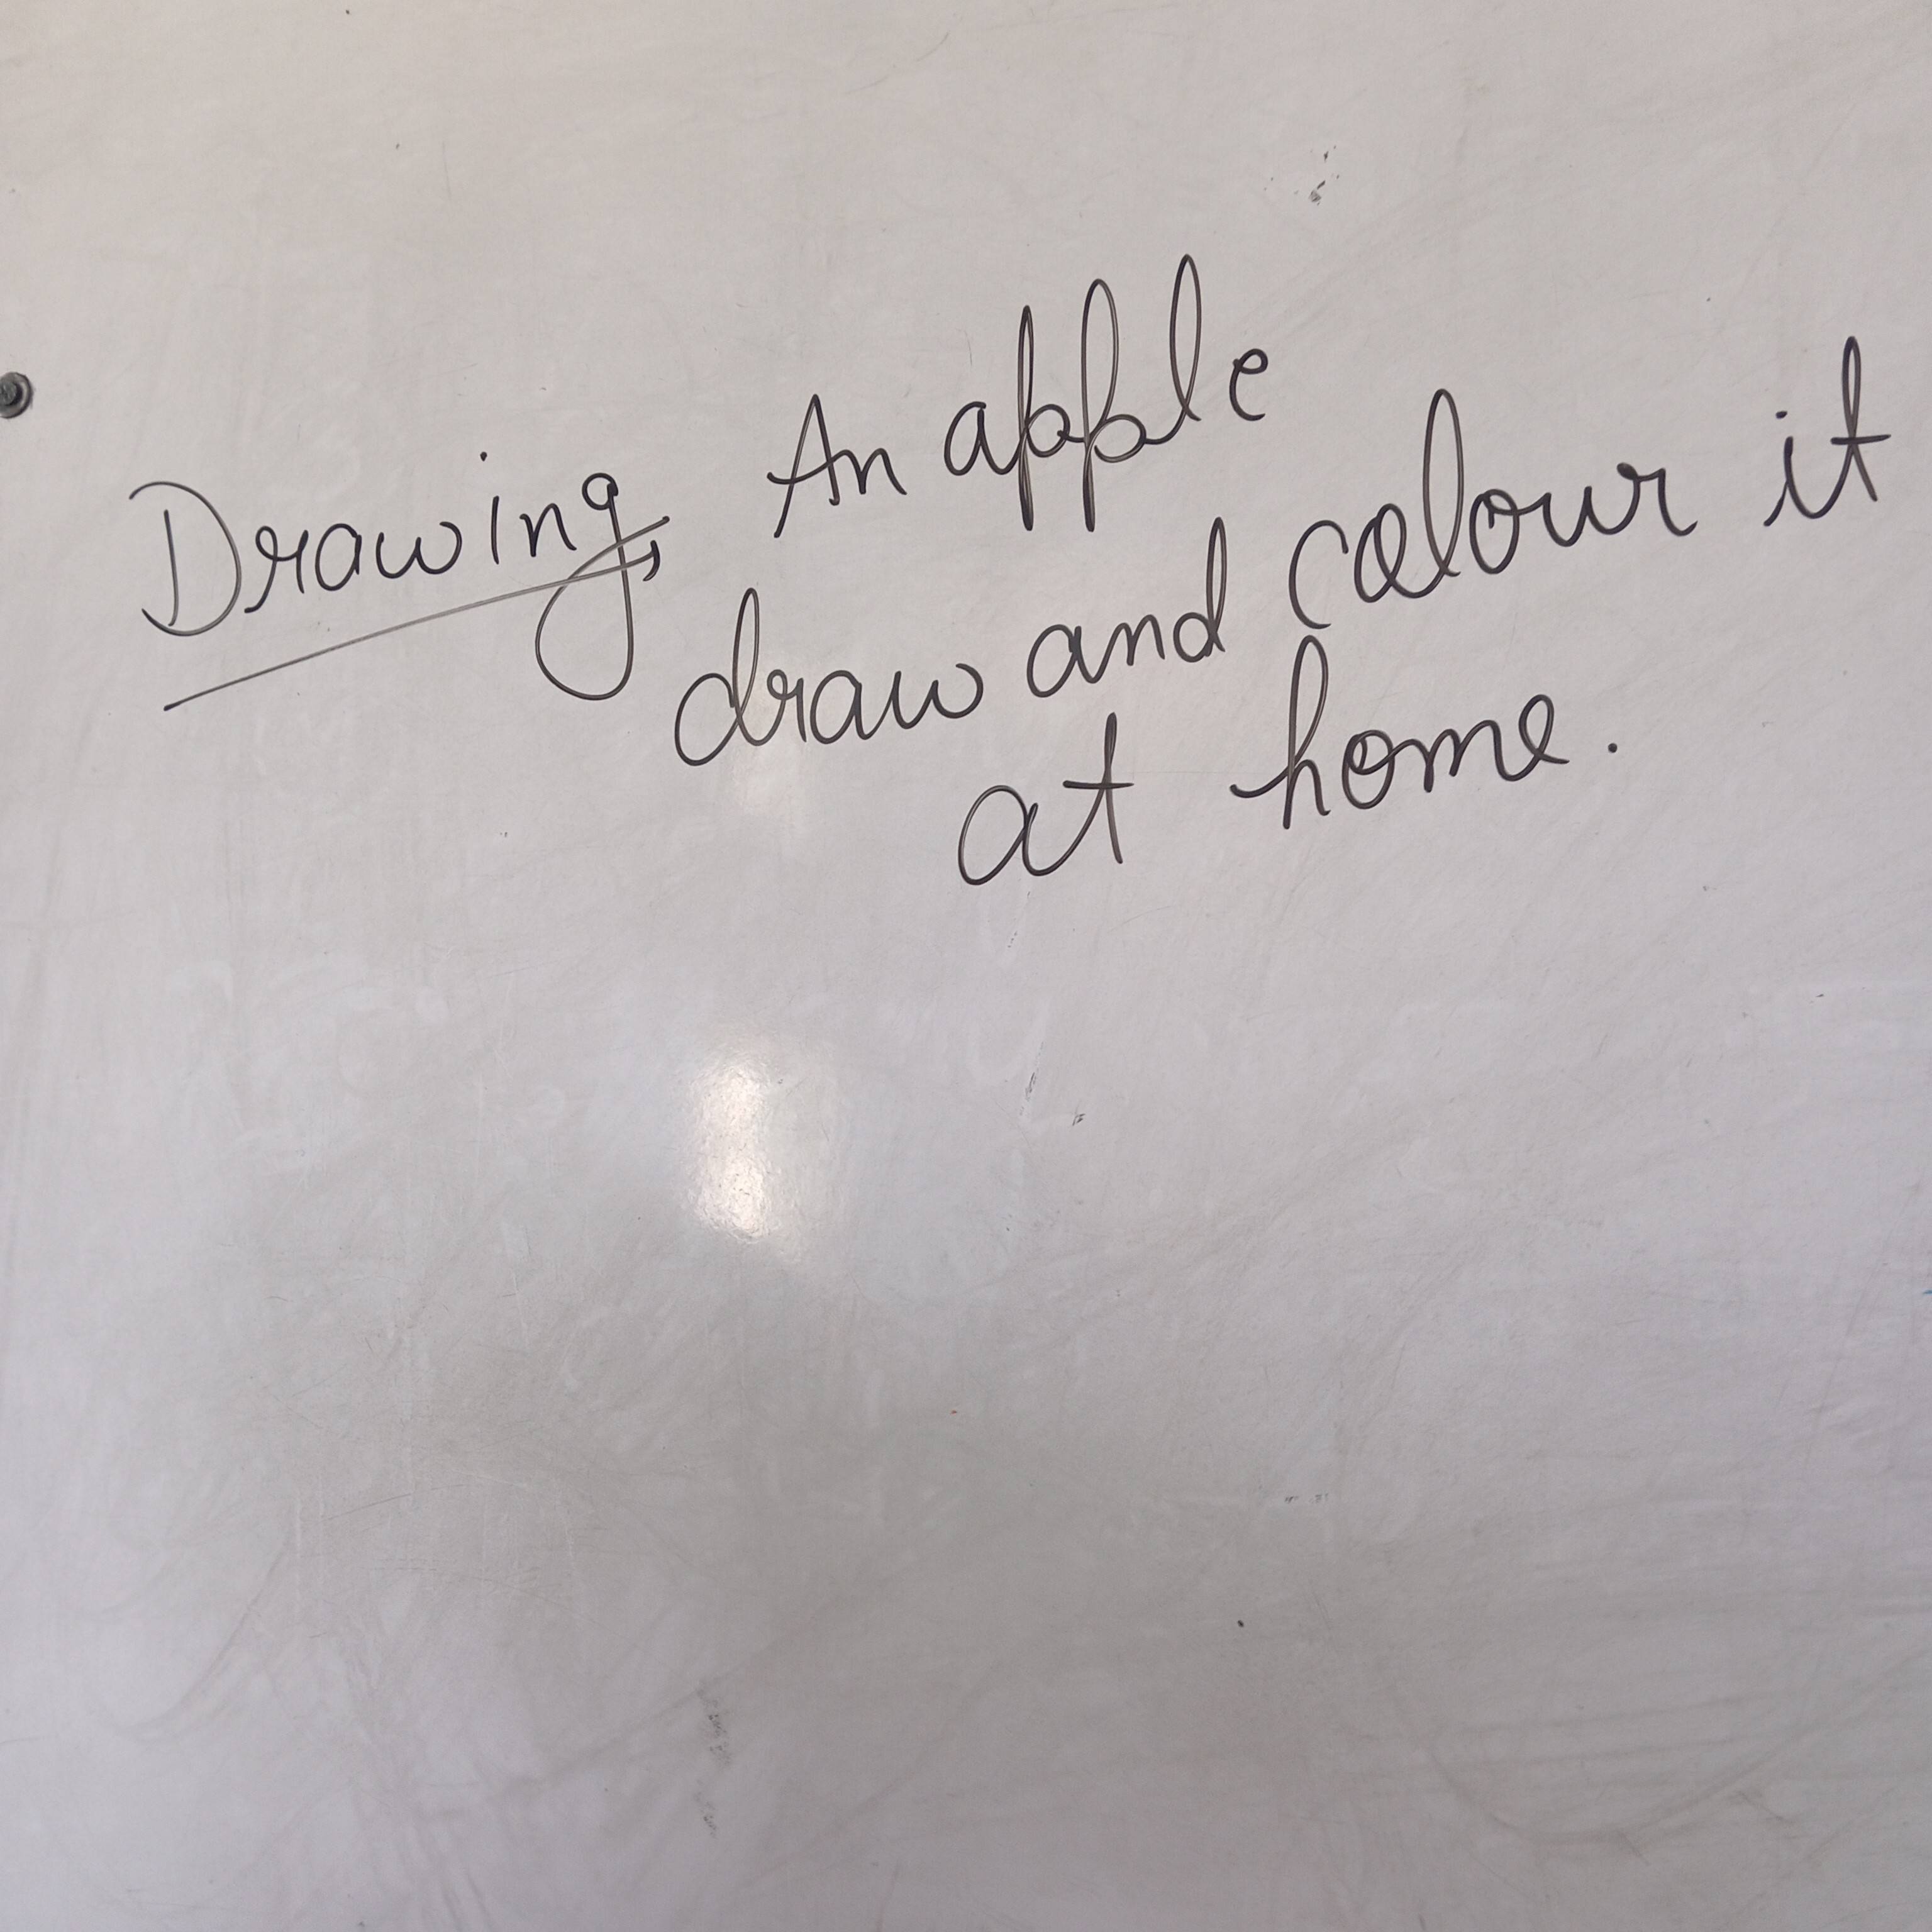 Drawing, An apple
draw and colour it
at home.